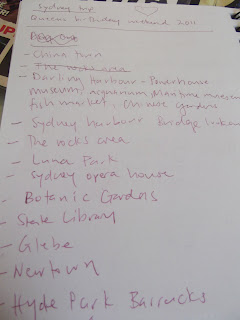 Sydney trip
Queens birthday weekend 2011
- China town
- The rocks area
- Darling harbour - Powerhouse
museum, aquarium, Maritime museum
fish market, Chinese gardens
- Sydney harbour Bridge
- The rocks area
- Luna Park
- Sydney opera house
- Botanic Gardens
- State Library
- Glebe
- Newtown
- Hyde Park Barracks